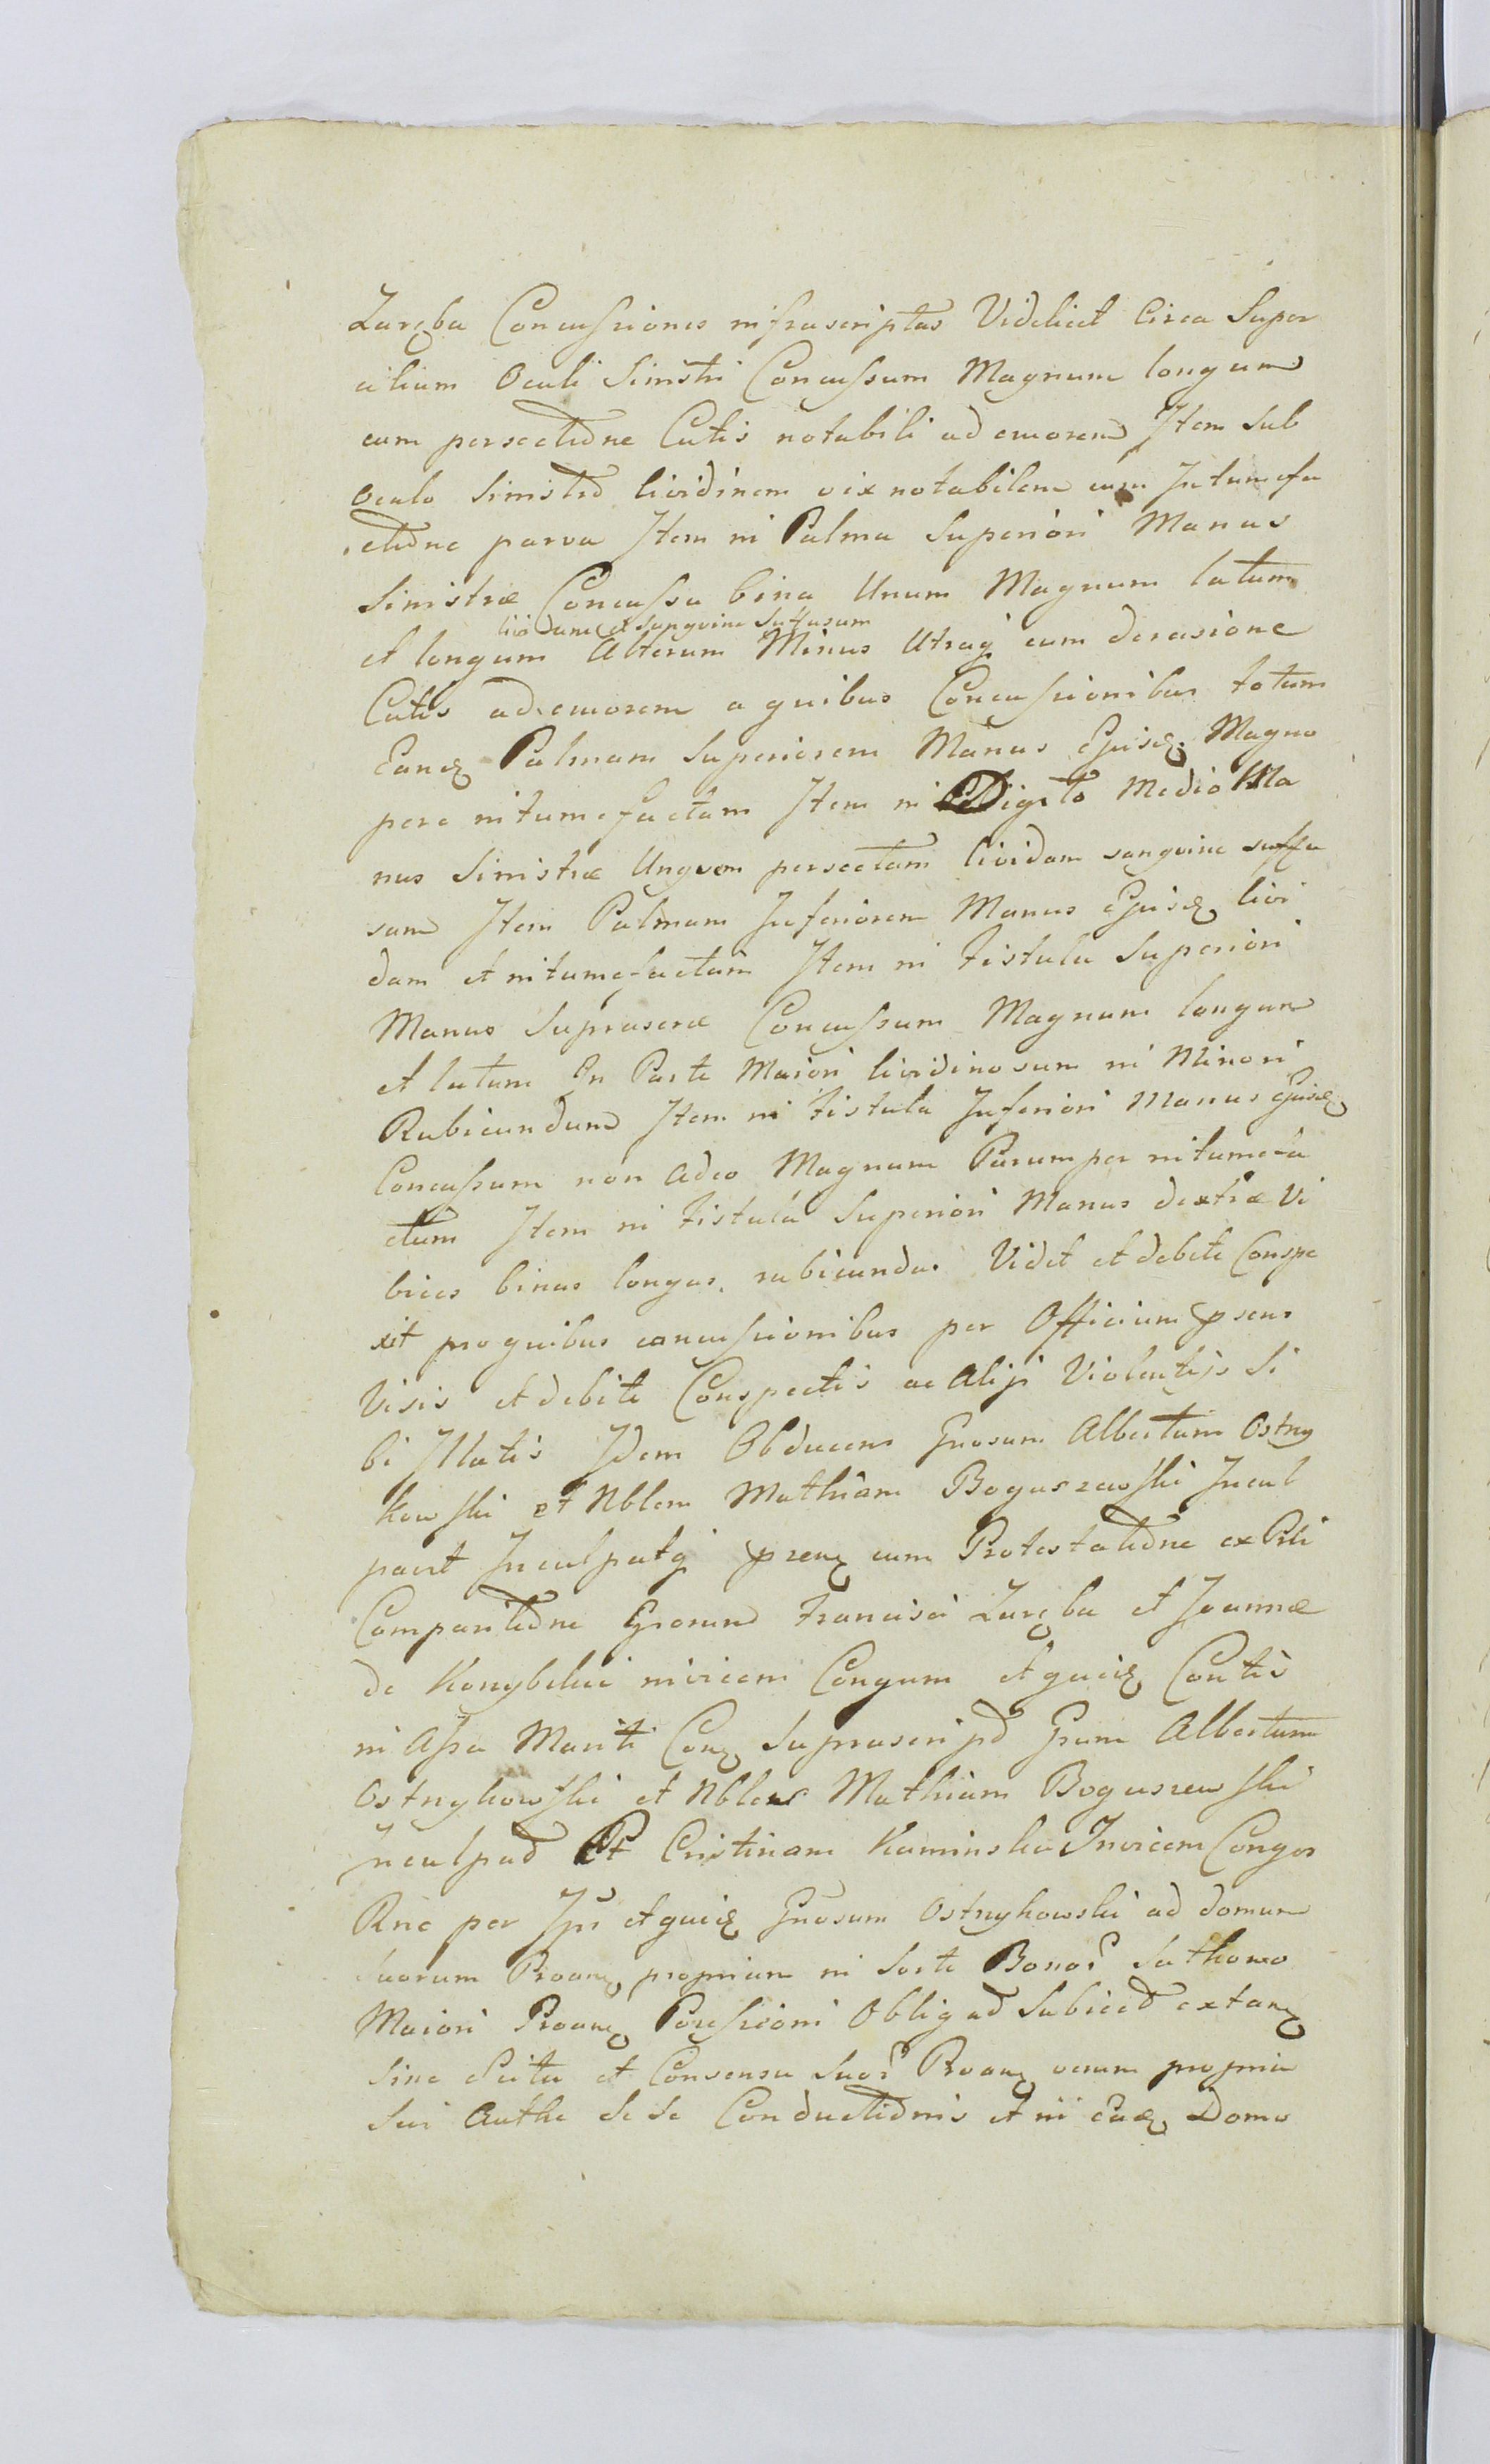 Zaręba Concussiones infrascriptas Videlicet Circa Super
cilium Oculi Sinistri Concussum Magnum longum
cum persectione Cutis notabili ad cruorem Item Sub
Oculo Sinistro lividinem vix notabilem cum Intumefa
ctione parva Item in Palma Superiori Manus
Sinistræ Concussa bina Unum Magnum latum
lividum et sanguine Suffusum
et longum Alterum Minus Utraq cum derasione
Cutis ad cruorem a quibus Concussionibus totam
Eanq Palmam Superiorem Manus Ejusq Magno
pere intumefactam Item in Digito Medio Ma
nus Sinistræ Ungvem persectam lividam sangvine suffu
sam Item Palmam Inferiorem Manus Ejusq livi
dam et intumefactam Item in Fistula Superiori
Manus Suprascræ Concussum Magnum longum
et latum In Parte Maiori lividinosum in Minori
Rubicundum Item in Fistula Inferiori Manus Ejusq
Concussum non adeo Magnum Parumper intumefa
ctum Item in Fistula Superiori Manus dextræ Vi
bices binas longas rubicundas Vidit et debite Conspe
xit pro quibus concussionibus per Officium psens
Visis et debite Conspectis ac Alijs Violentijs Si
bi Illatis Idem Obducens Gnosum Albertum Ostry
kowski et Nblem Mathiam Boguszewski Incul
pavit Inculpatq prenq cum Protestatione ex Prti
Comparitione Gnorum Francisci Zaręba et Joannæ
de Konybelni invicem Congum
in Assa Mariti Suprascript Gnum Albertum
Ostrykowski et Nblem Mathiam Boguszewski
Inculpat Et Cristinam Kaminska Invicem Congos
Rne per Gnosum Ostrykowski ad domum
Suorum Proanq propriam in Sorte Bonor Sutkowo
Maiori Proanq Possessioni Obligat Subiect extanq
Sine Scitu et Consensu Suor Proanq verum propria
Sui Authe Se Se Conductionis et in Eaq Domo